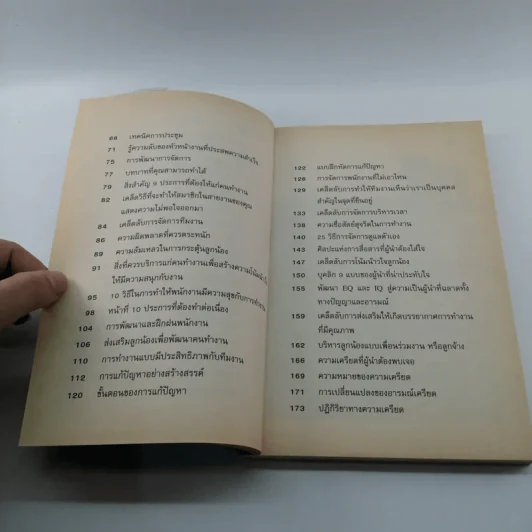 68 เทคนิคการประชุม
71 รู้ความลับของหัวหน้างานที่ประสพความสำเร็จ
75 การพัฒนาการจัดการ
77 บทบาทที่คุณสามารถทำได้
79 สิ่งสำคัญ 9 ประการที่ต้องให้แก่คนทำงาน
82 เคล็ดวิธีที่จะทำให้สมาชิกในสายงานของคุณ
แสดงความไม่พอใจออกมา
84 เคล็ดลับการจัดการทีมงาน
86 ความผิดพลาดที่ควรตระหนัก
89 ความล้มเหลวในการกระตุ้นลูกน้อง
91 สิ่งที่ควรบริการแก่คนทำงานเพื่อสร้างความ
ให้มีความสนุกกับงาน
95 10 วิธีในการทำให้พนักงานมีความสุขกับการทำงาน
98 หน้าที่ 10 ประการที่ต้องทำต่อเนื่อง
104 การพัฒนาและฝึกฝนพนักงาน
106 ส่งเสริมลูกน้องเพื่อพัฒนาคนทำงาน
110 การทำงานแบบมีประสิทธิภาพกับทีมงาน
112 การแก้ปัญหาอย่างสร้างสรรค์
120 ขั้นตอนของการแก้ปัญหา
122 แบบฝึกหัดการแก้ปัญหา
128 การจัดการพนักงานที่ไม่เอาไหน
129 เคล็ดลับการทำให้ทีมงานเห็นว่าเราเป็นบุคคล
สำคัญในจุดที่ยืนอยู่
133 เคล็ดลับการจัดการบริหารเวลา
138 ความซื่อสัตย์สุจริตในการทำงาน
140 25 วิธีการจัดการดูแลตัวเอง
143 ศิลปะแห่งการสื่อสารที่ผู้นำต้องใส่ใจ
147 เคล็ดลับการโน้มน้าวใจลูกน้อง
150 บุคลิก 9 แบบของผู้นำที่น่าประทับใจ
155 พัฒนา EQ และ IQ สู่ความเป็นผู้นำที่ฉลาดทั้ง
ทางปัญญาและอารมณ์
159 เคล็ดลับการส่งเสริมให้เกิดบรรยากาศการทำงาน
ที่มีคุณภาพ
162 บริหารลูกน้องแบบเพื่อนร่วมงาน หรือลูกจ้าง
166 ความเครียดที่ผู้นำต้องพบเจอ
169 ความหมายของความเครียด
171 การเปลี่ยนแปลงของอารมณ์เครียด
173 ปฏิกิริยาทางความเครียด